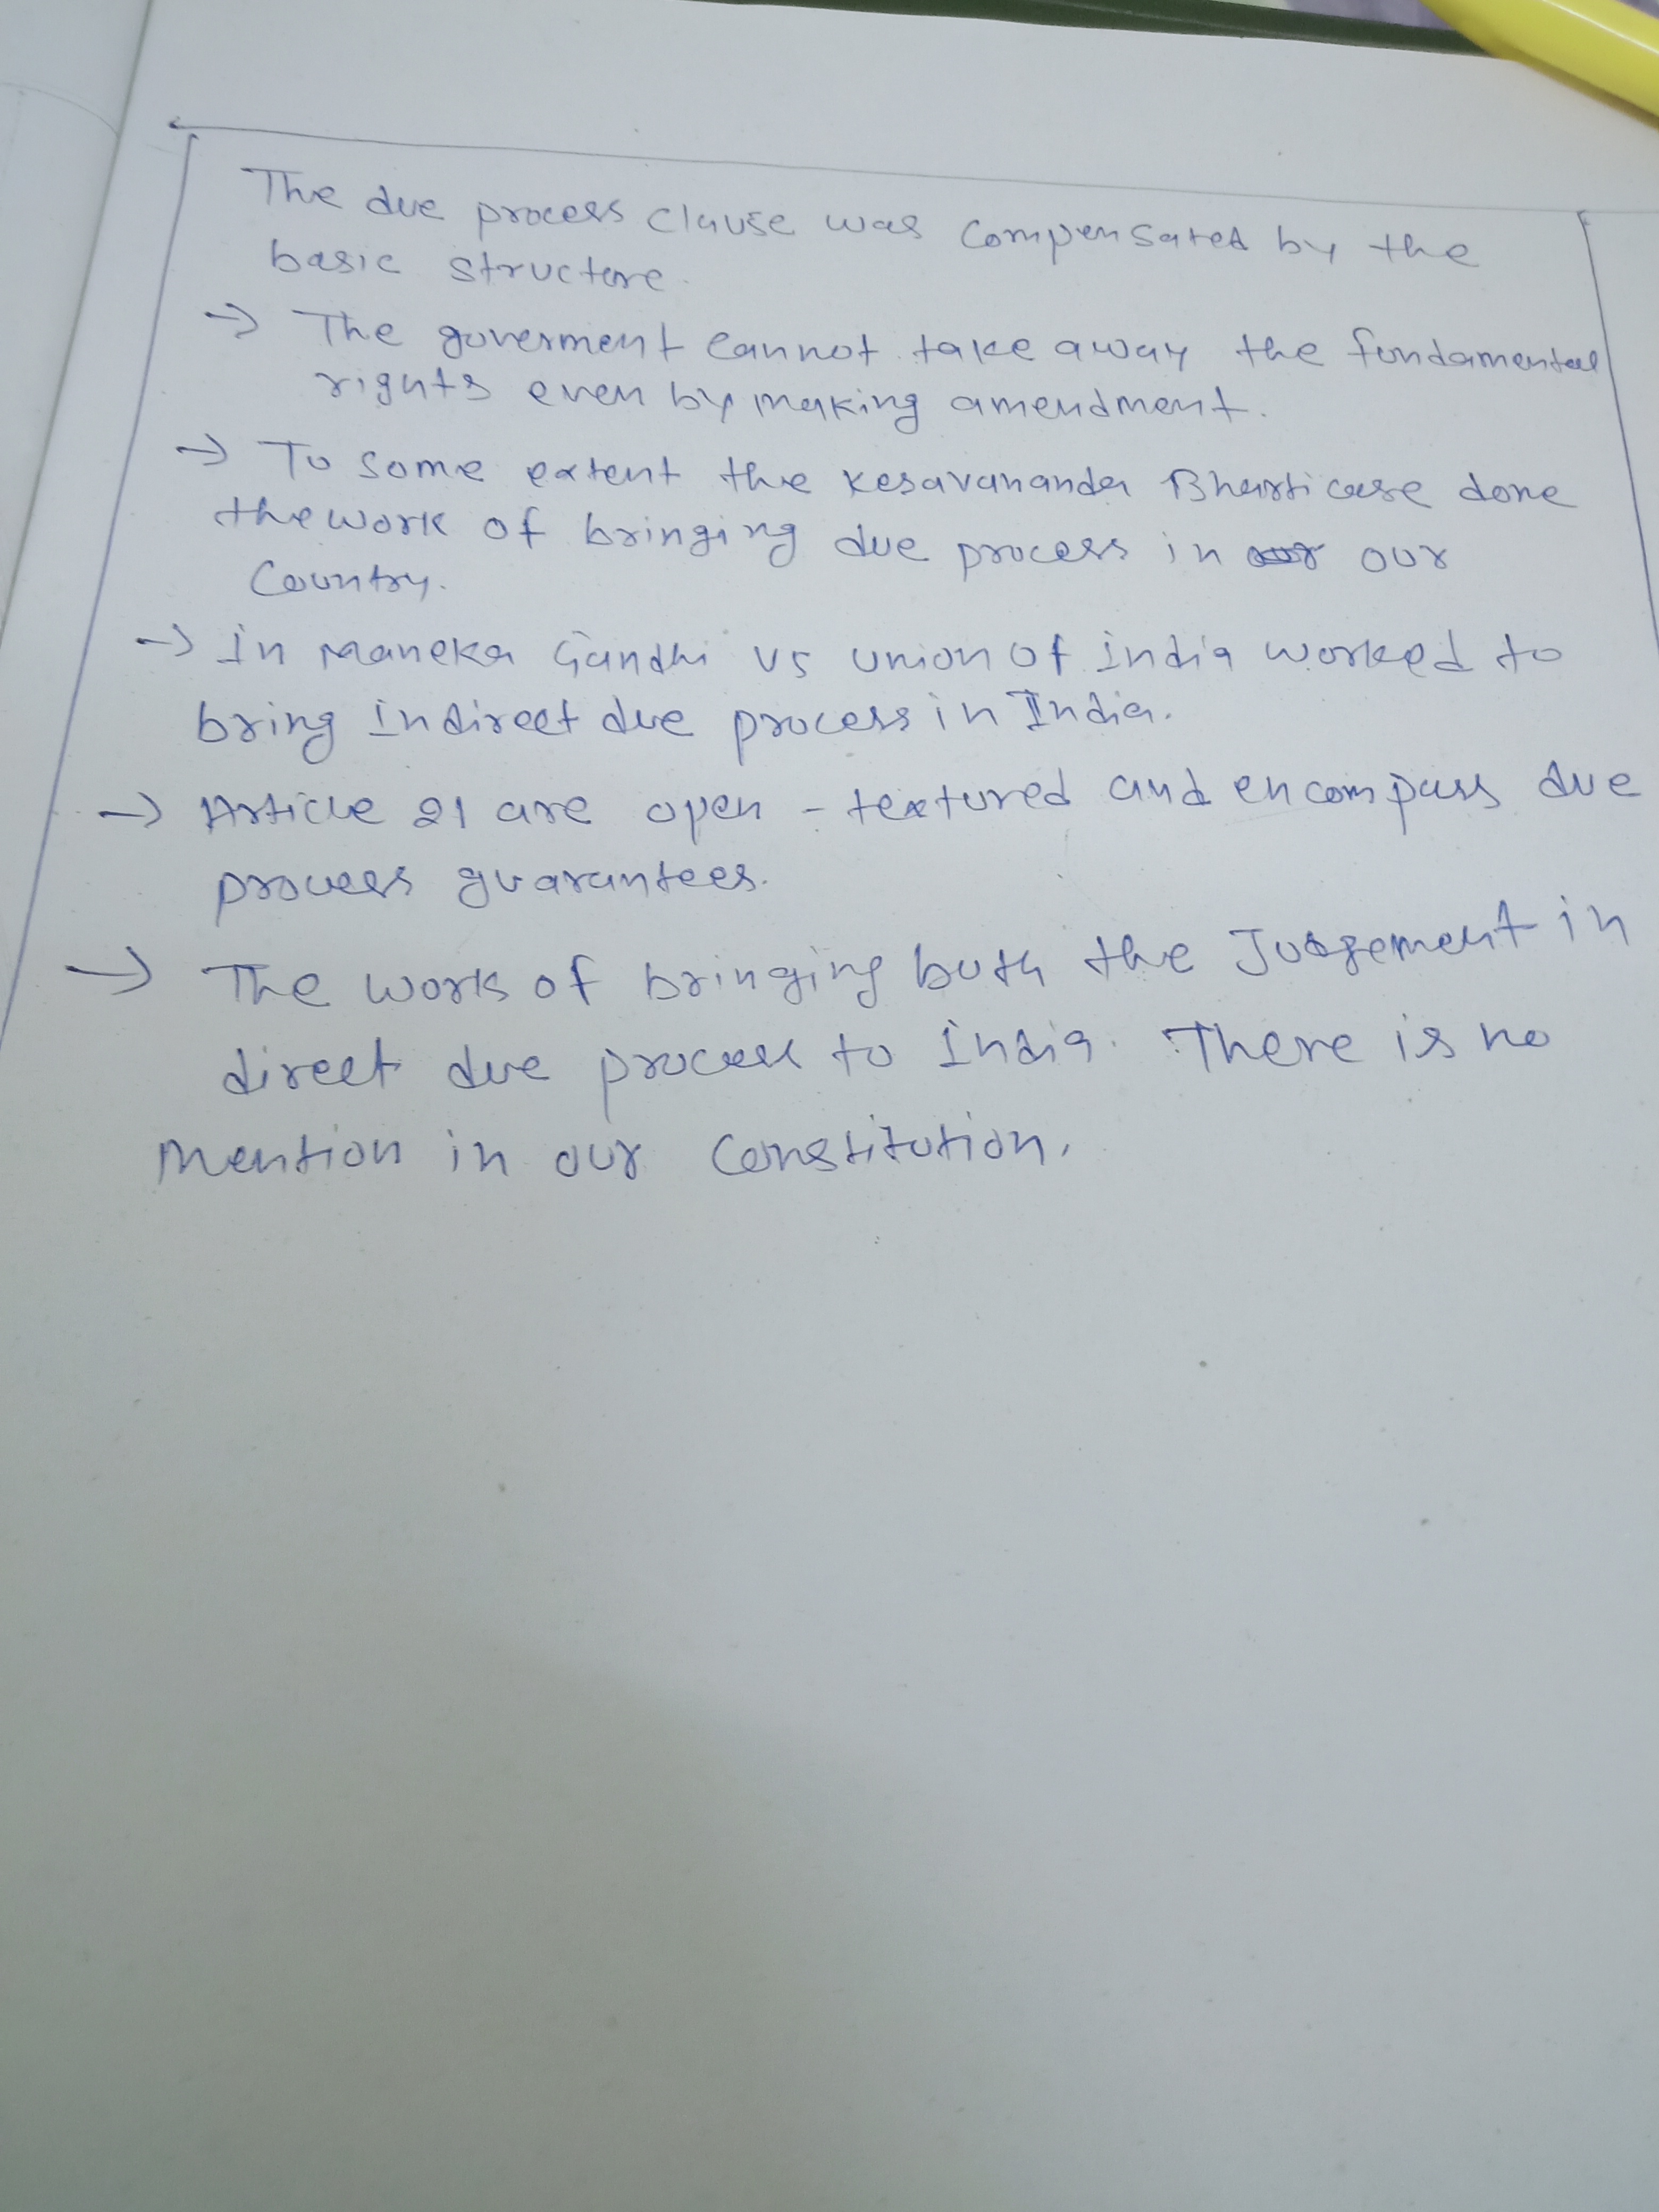 The due process clause was compensated by the
basic structure.
→ The goverment cannot take away the fundamental
rights even by making amendment.
→ To some extent the Kesavananda Bharti case done
the work of bringing due process in our
Country.
→ In Maneka Gandhi vs union of india worked to
bring indirect due process in India.
→ Article 21 are open - textured and encompass due
process guarantees.
→ The work of bringing both the Judgement in
direct due process to India. There is no
mention in our constitution.